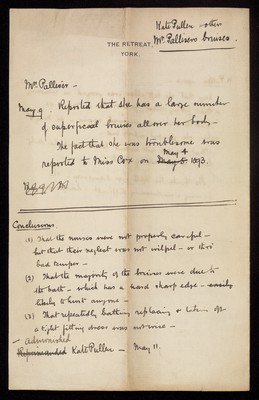 Kate Pullen - others
Mrs Pallisers bruises.
THE RETREAT,
YORK.
Mrs Palliser -
May 9. Reported that she has a large number
of superficial bruises all over her body -
The fact that she was troublesome was
May 4
reported to Miss Cox on May 5 1893.
Conclusions
(1) That the nurses were not properly careful -
but that their neglect was not wilful - or thro'
bad temper -
(2) That the majority of the bruises were due to
the bath - which has a hard sharp edge - easily
likely to hurt anyone -
(3) That repeatedly bathing replacing & taking off
a tight fitting dress was not wise -
- admonished
Reprimanded Kate Pullen - May 11.